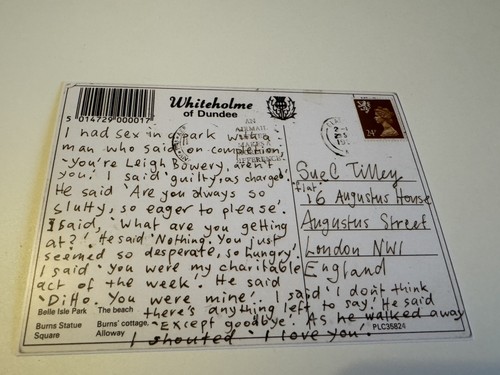 Whiteholme
of Dundee
5 014729 000017
24P
AN
AIRMAIL
MAKES A
DIFFERENCE
I had sex in a park with a
man who said on completion,
'You're Leigh Bowery, aren't
you.' I said 'guilty, as charged'.
He said 'Are you always so
slutty, so eager to please'.
I said, 'what are you getting
at?' He said 'Nothing. You just
seemed so desperate, so hungry'.
I said 'You were my charitable
act of the week'. He said
'Ditto. You were mine'. I said 'I don't think
there's anything left to say'. He said
'Except goodbye'. As he walked away
I shouted 'I love you'.
Sue C Tilley
flat 16 Augustus House
Augustus Street
London NW1
England
Belle Isle Park The beach
Burns Statue Burns' cottage,
Square Alloway
PLC35824